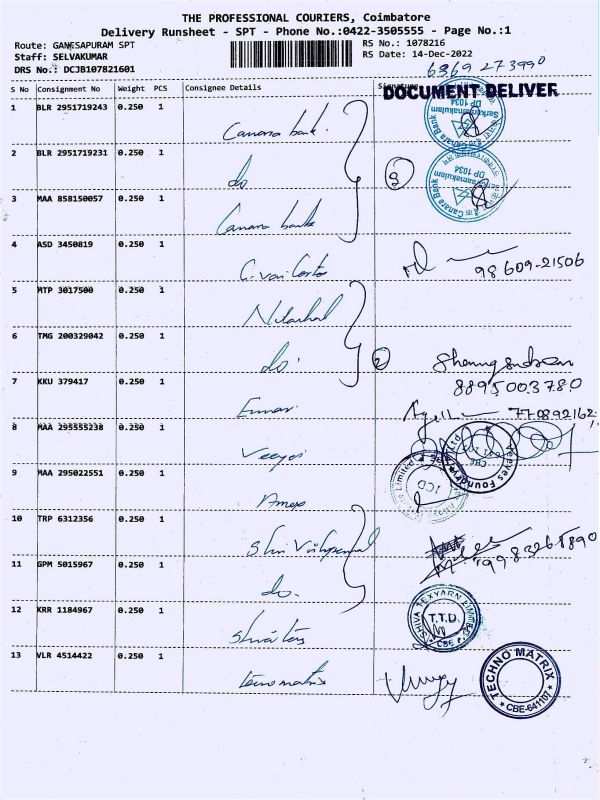 THE PROFESSIONAL COURIERS, Coimbatore
Delivery Runsheet - SPT - Phone No.:0422-3505555 - Page No.:1
Route: GANESAPURAM SPT
RS No.: 1078216
Staff: SELVAKUMAR
RS Date: 14-Dec-2022
DRS No.: DCJB107821601
6369 273990
S No Consignment No Weight PCS Consignee Details Signature
DOCUMENT DELIVER
1 BLR 2951719243 0.250 1 Canara bank.
2 BLR 2951719231 0.250 1 do
3 MAA 858150057 0.250 1 Canara bank
Canara Bank
DP 1034
3
4 ASD 3450819 0.250 1
98609-21506
5 MTP 3017500 0.250 1
6 TMG 200329042 0.250 1 do.
2
7 KKU 379417 0.250 1
8895003780
8 MAA 295555238 0.250 1
770892162
Foundry
CBE
9 MAA 295022551 0.250 1
Limited
ICD
10 TRP 6312356 0.250 1 Shri
11 GPM 5015967 0.250 1 do.
12 KRR 1184967 0.250 1 Shiva Tex
SHIVA TEXYARN LIMITED
T.T.D.
CBE
13 VLR 4514422 0.250 1 Tecno matrix
TECHNO MATRIX
CBE-641107